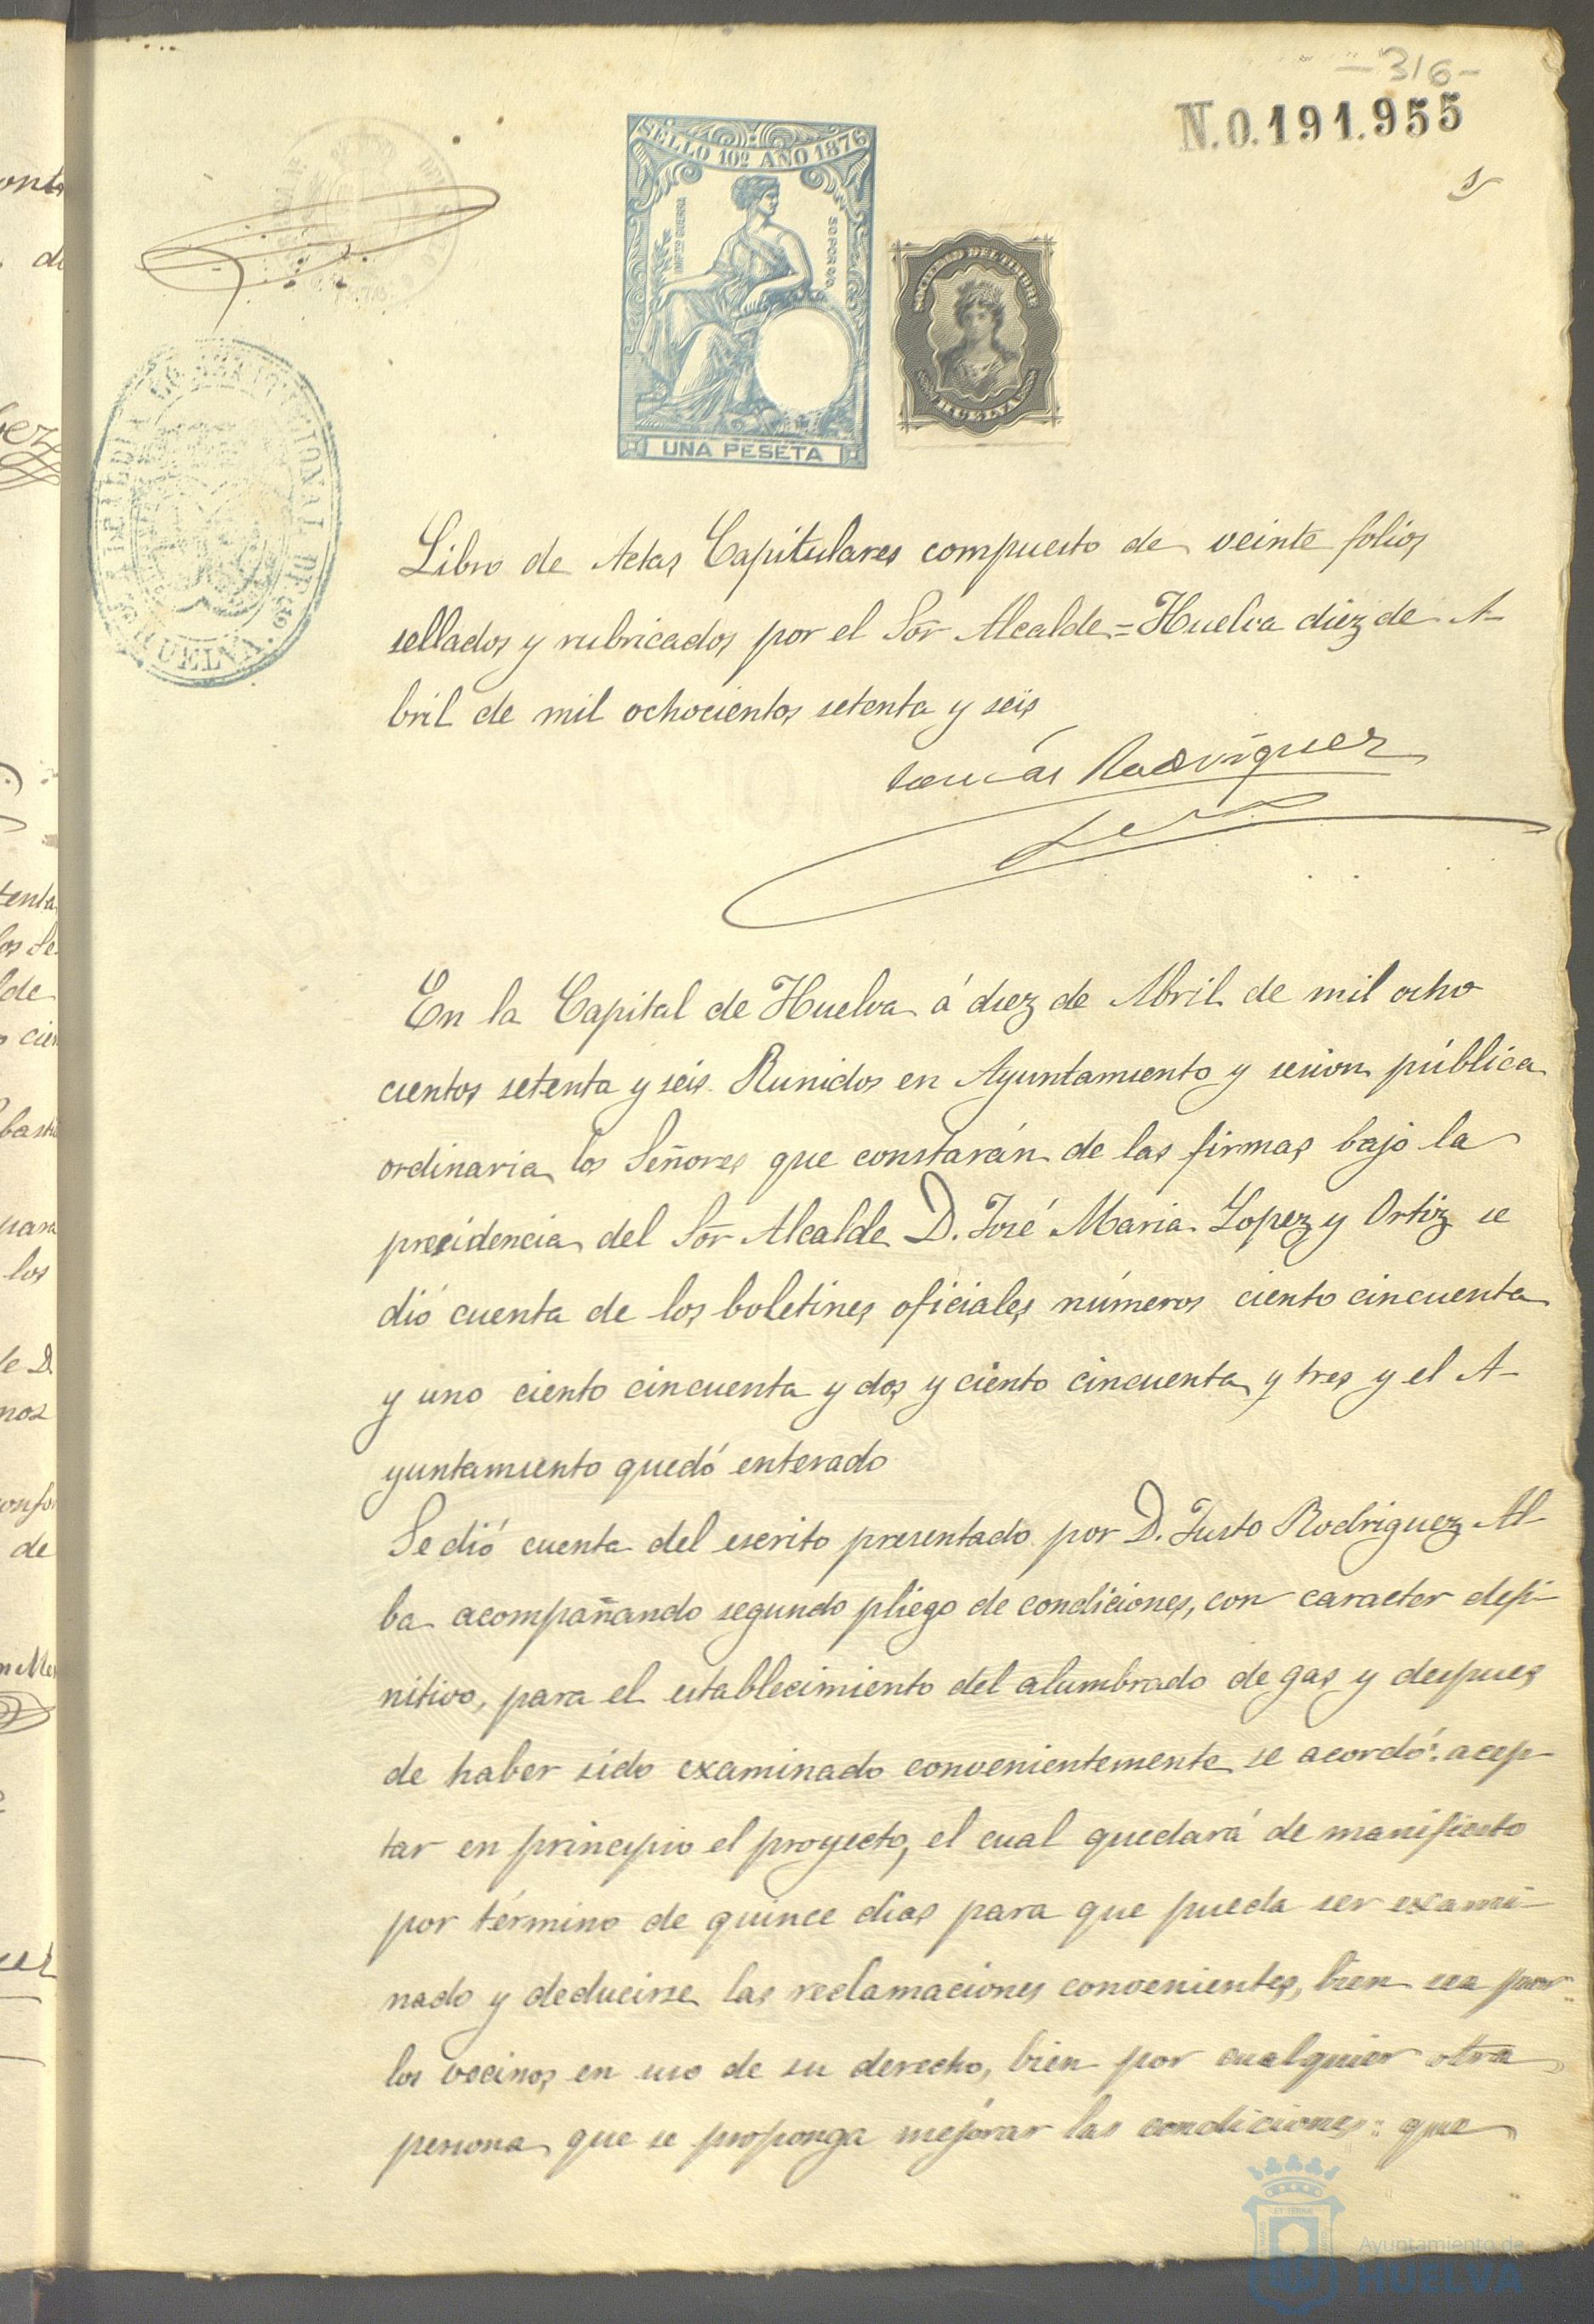 -316-
N.0.191.955
1
SELLO 10º AÑO 1876
IMPTO GUERRA
50 POR 00
UNA PESETA
SOCIEDAD DEL TIMBRE
HUELVA
ALCALDIA CONSTITUCIONAL DE
HUELVA
Libro de Actas Capitulares compuesto de veinte folios
sellados y rubricados por el Sor Alcalde = Huelva diez de A-
bril de mil ochocientos setenta y seis
Tomás Rodriguez
En la Capital de Huelva á diez de Abril de mil ocho
cientos setenta y seis. Runidos en Ayuntamiento y sesion pública
ordinaria los Señores que constarán de las firmas bajo la
presidencia del Sor Alcalde D. José Maria Lopez y Ortiz se
dió cuenta de los boletines oficiales números ciento cincuenta
y uno ciento cincuenta y dos y ciento cincuenta y tres y el A-
yuntamiento quedó enterado
Se dió cuenta del escrito presentado por D. Justo Rodriguez Al-
ba acompañando segundo pliego de condiciones, con caracter defi-
nitivo, para el establecimiento del alumbrado de gas y despues
de haber sido examinado convenientemente se acordó: acep-
tar en principio el proyecto, el cual quedará de manifiesto
por término de quince dias para que pueda ser exami-
nado y deducirse las reclamaciones convenientes, bien sea por
los vecinos en uso de su derecho, bien por cualquier otra
persona que se proponga mejorar las condiciones: que
Ayuntamiento de
HUELVA